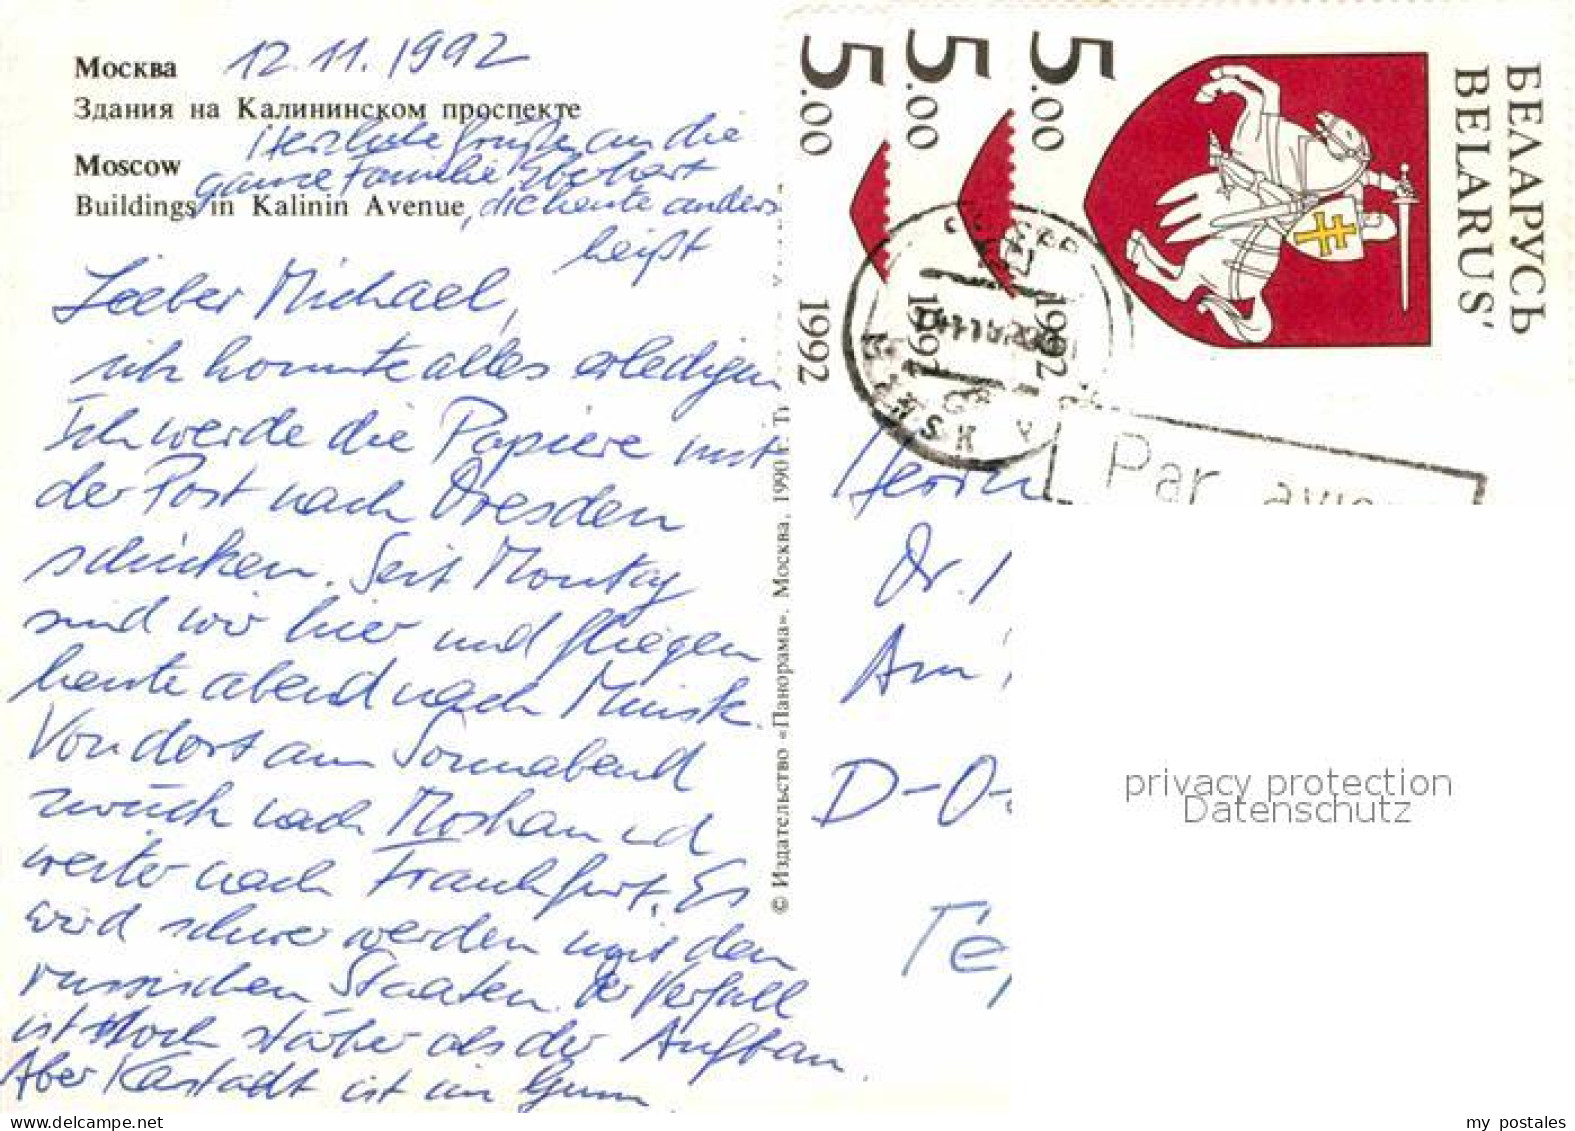 Москва 12.11.1992
Здания на Калининском проспекте
Herzliche Grüße an die
Moscow
ganze Familie
Buildings in Kalinin Avenue, die heute anders
heißt
Lieber Michael,
ich konnte alles erledigen
Ich werde die Papiere mit
der Post nach Dresden
schicken. Seit Montag
sind wir hier und fliegen
heute abend nach Minsk.
Von dort am Sonnabend
zurück nach Moskau und
weiter nach Frankfurt. Es
wird schwer werden mit den
russischen Staaten. Der Verfall
ist noch stärker als der Aufbau.
Aber Karstadt ist im Gum
© Издательство «Панорама». Москва, 1990 г. Ти
5.00
1992
5.00
1992
5.00
1992
БЕЛАРУСЬ
BELARUS'
MINSK
Par avion
Herrn
Dr.
Am
D-O-
privacy protection
Datenschutz
my postales
www.delcampe.net